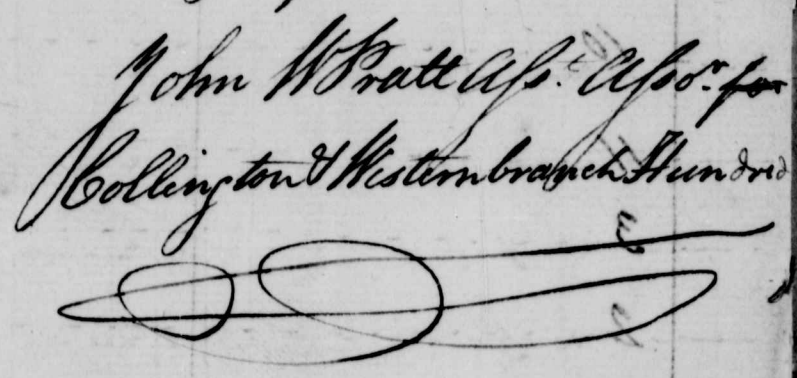 John W Pratt Asst. Assor. for
Collington & Westernbranch Hundred